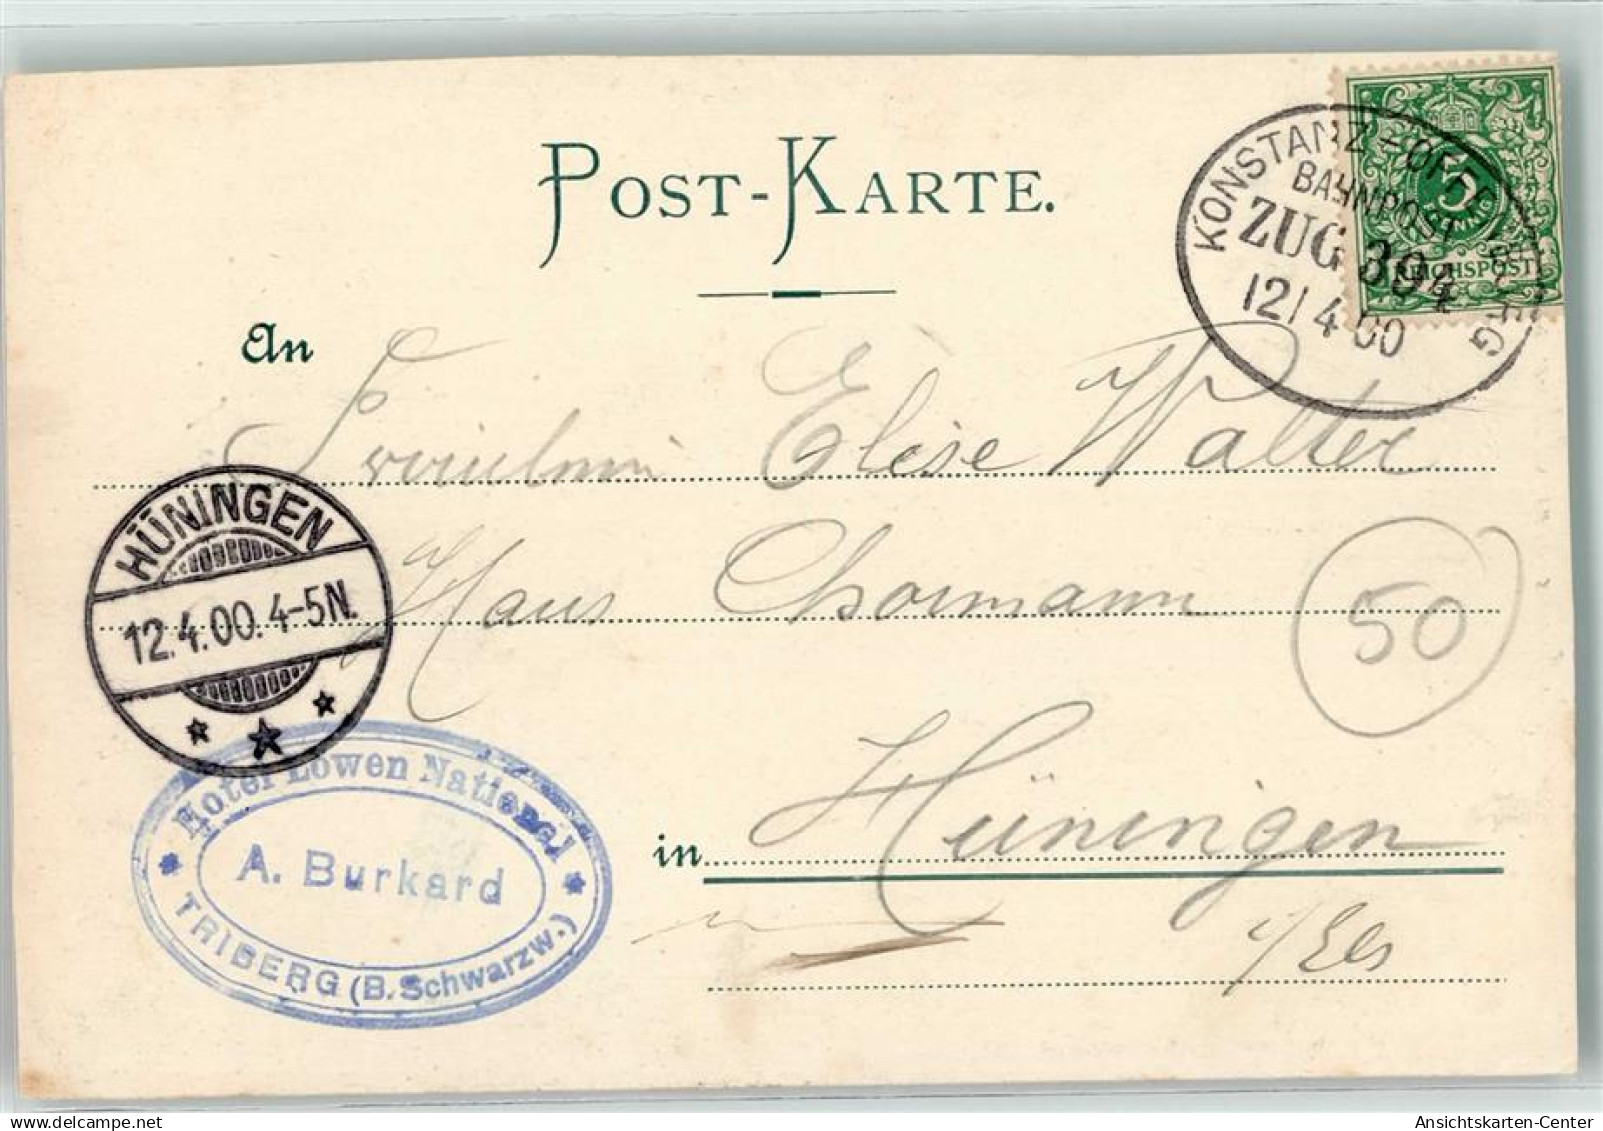 POST-KARTE.
KONSTANZ - OFFENBURG
BAHNPOST
ZUG 394
12/4 00
5
PFENNIG
REICHSPOST
An
Fräulein Elise Walter
HÜNINGEN
12.4.00.4-5N.
Haus
50
in Hüningen
i/Els
Hotel Löwen National
A. Burkard
TRIBERG (B. Schwarzw.)
oldthing.de
Ansichtskarten-Center